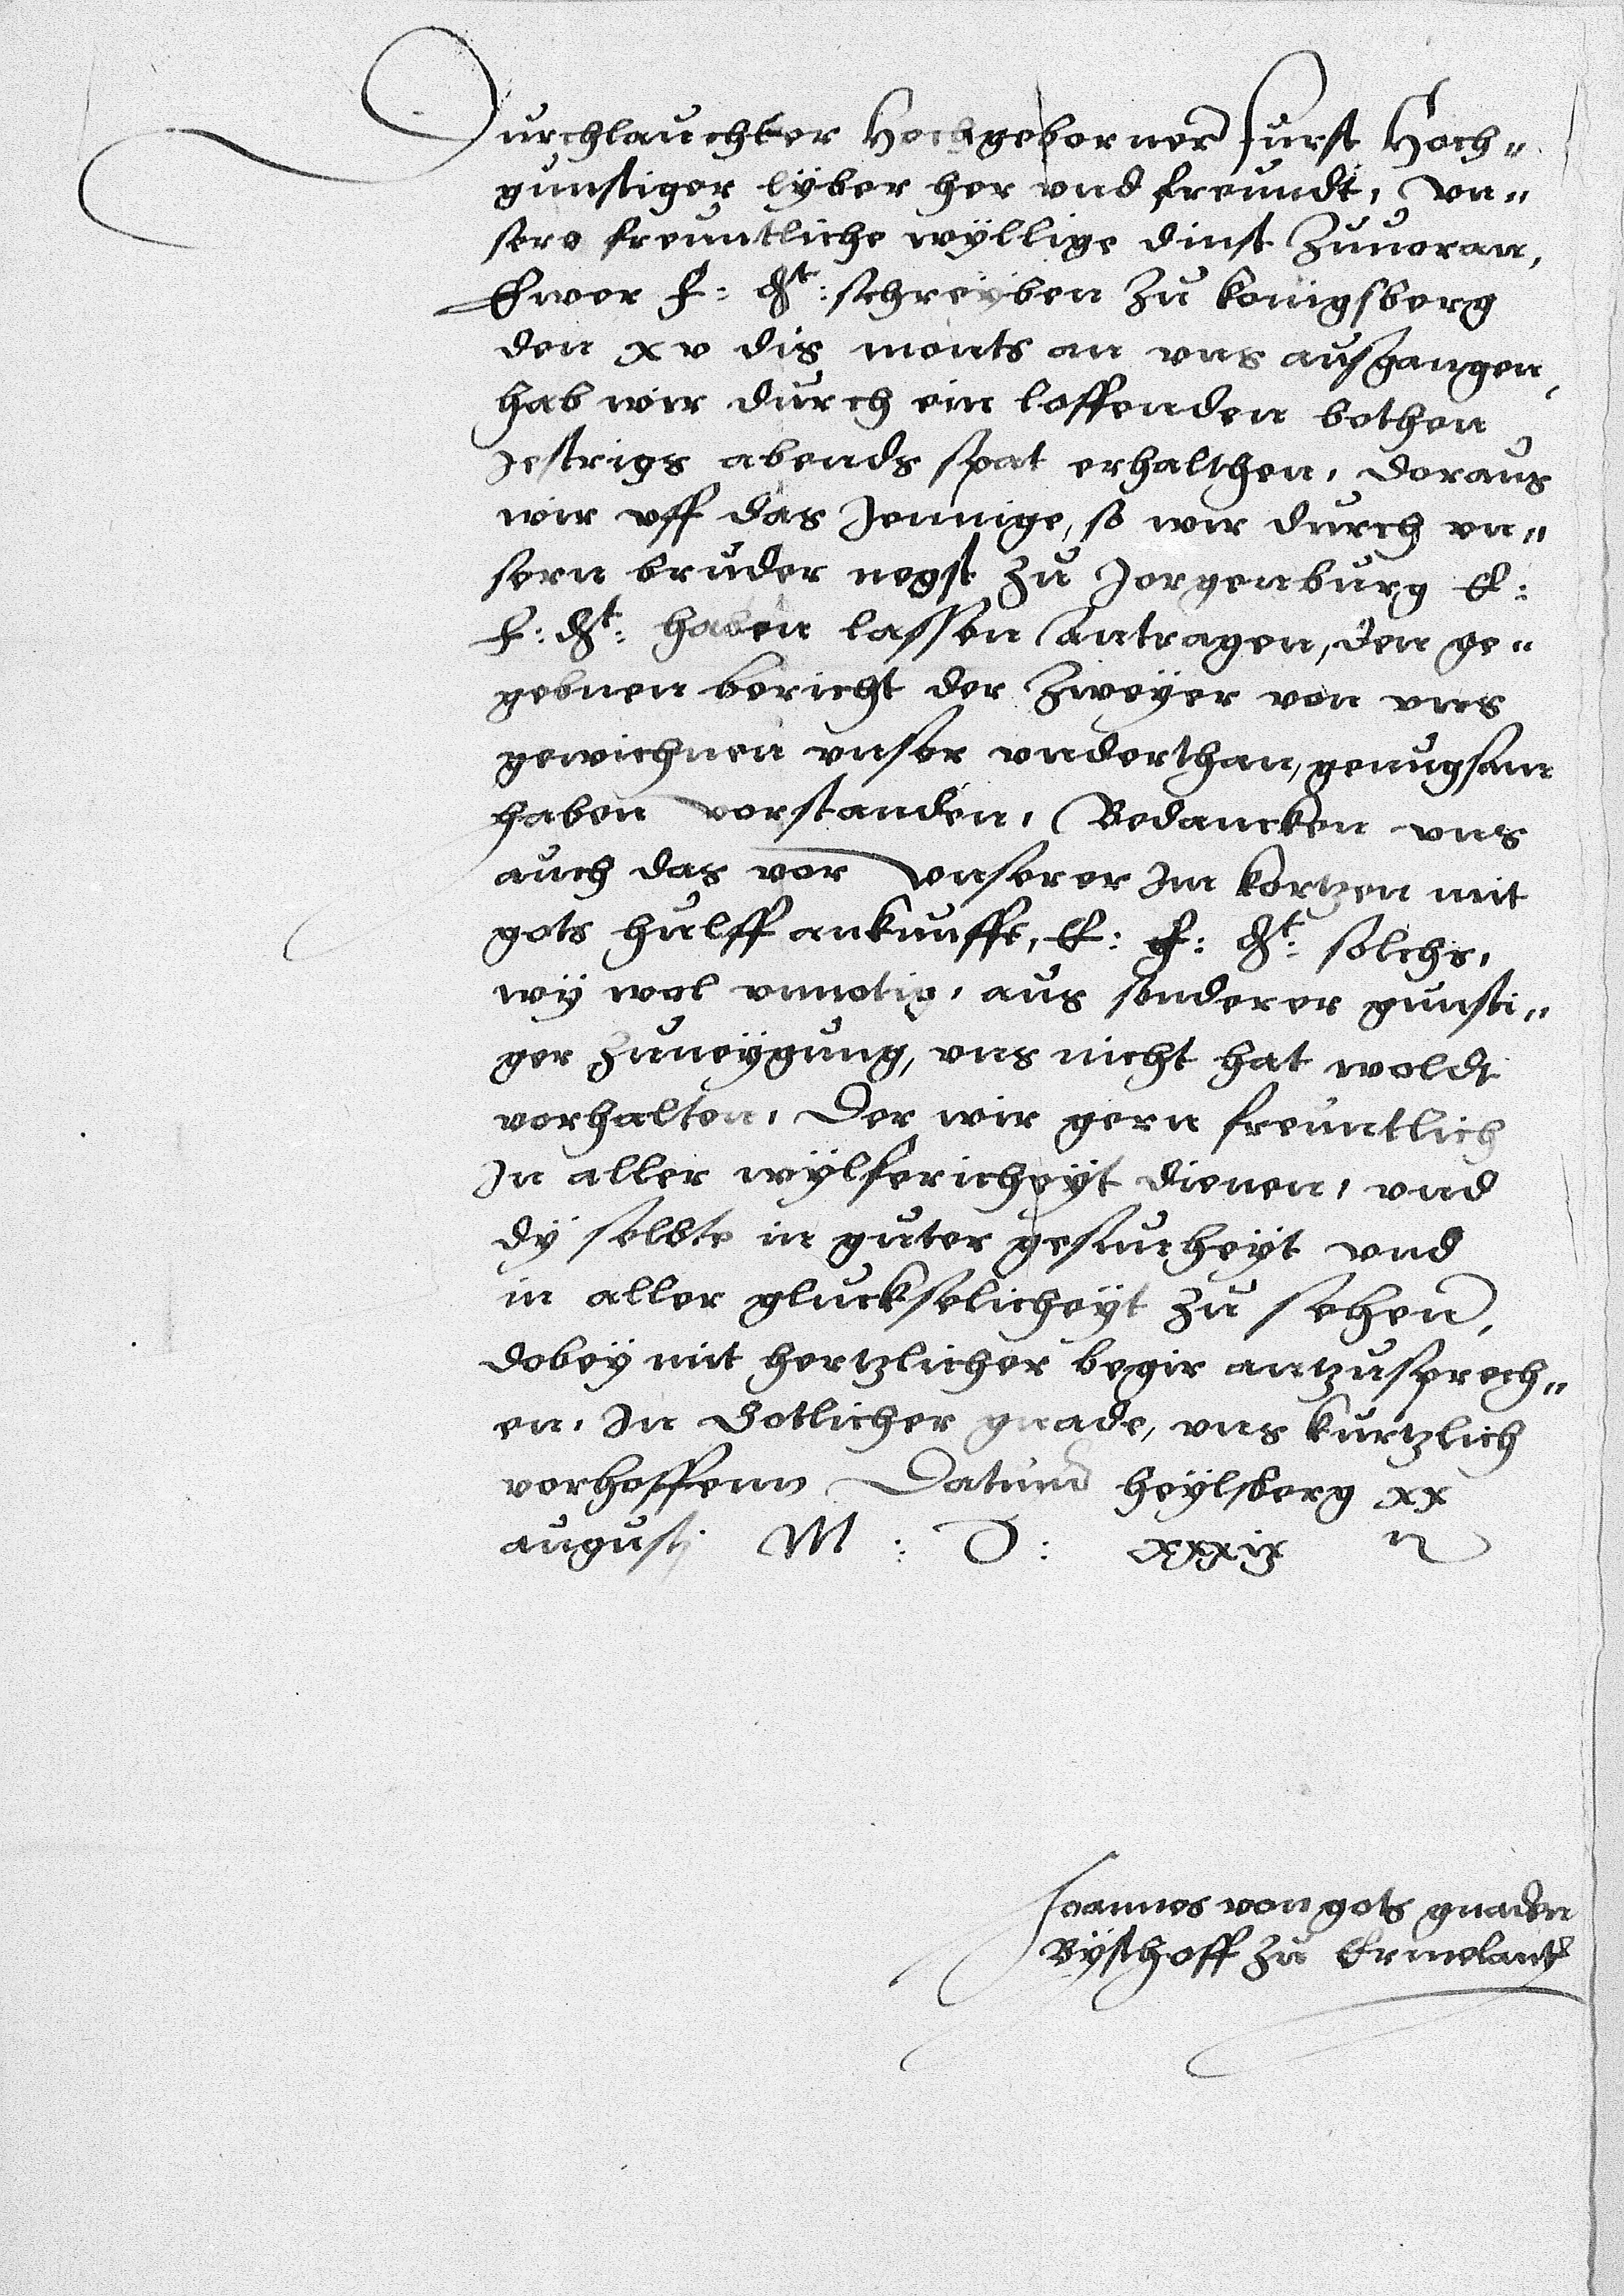 Durchlauchter Hochgeborner furst Hoch„
gunstiger lyber her vnd freundt, vn„
sere freuntliche wyllige dinst zuuoran,
Ewer f: dt: schreyben zu konigsberg
den xv dis monts an vns ausgangen,
hab wir durch ein loffenden bothen
Jestrigs abends spat erhalthen, doraus
wir vff das Jennige, so wir durch vn„
sern bruder negst zu Jorgenburg E:
f: dt: haben lassen antragen, den ge„
gebnen bericht der zweyer von vns
gewichnen vnser vnderthan, genugsam
haben vorstanden, Bedancken vns
auch das vor vnserer Im kortzen mit
gots hulff ankunfft, E: f: dt: solchs,
wy wol vnnotig, aus sonderer gunsti„
ger zuneygung, vns nicht hat woldt
vorhalten, Der wir gern freuntlich
In aller wylfericheyt dienen, vnd
dy selbte in guter gesuntheyt vnd
in aller gluckselicheyt zu sehen,
dobey mit hertzlicher begir antzusprech„
en, In Gotlicher gnade, vns kurtzlich
vorhoffenn Datum heylsberg xx
augustj M : D : xxxix
Joannes von gots gnaden
Bysthoff zu Ermelandt